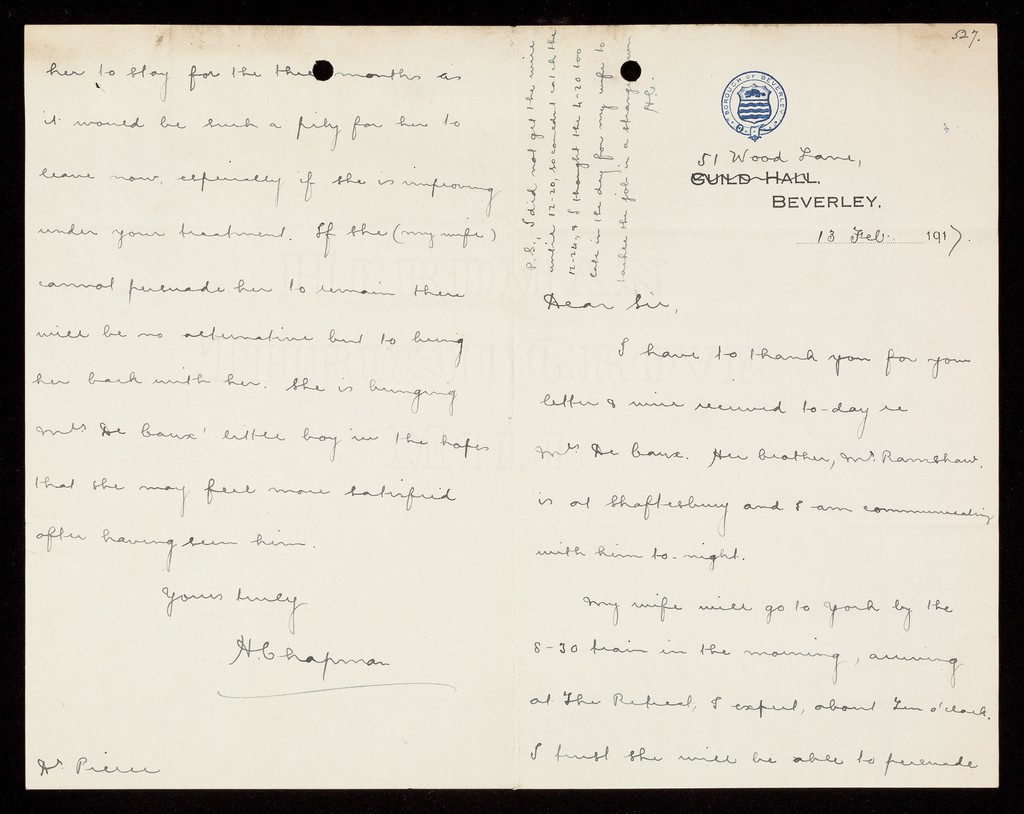 527.
BOROUGH OF BEVERLEY
51 Wood Lane,
GUILD HALL,
BEVERLEY.
13 Feb. 1917.
Dear Sir,
I have to thank you for your
letter & wire received to-day re
Mrs De Caux. Her brother, Mr. Ramshaw.
is at Shaftesbury and I am communicating
with him to-night.
My wife will go to York by the
8-30 train in the morning, arriving
at The Retreat, I expect, about Ten o'clock.
I trust she will be able to persuade
her to stay for the three months as
it would be such a pity for her to
leave now, especially if she is improving
under your treatment. If she (my wife)
cannot persuade her to remain there
will be no alternative but to bring
her back with her. She is bringing
Mrs De Caux' little boy in the hopes
that she may feel more satisfied
after having seen him.
Yours truly
H. Chapman
Dr. Pierce
P.S. I did not get the wire
until 12-20, so could not catch the
12-24, & I thought the 4-20 too
late in the day for my wife to
tackle the job in a strange town
H.C.